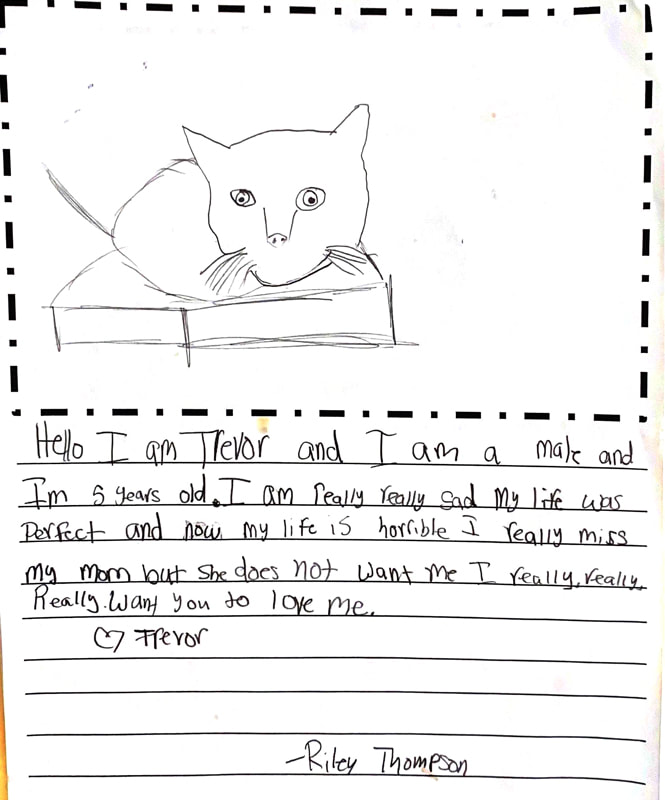 Hello I am Trevor and I am a male and
I'm 5 years old. I am really really sad my life was
perfect and now my life is horrible I really miss
my mom but she does not want me I really, really,
Really. want you to love me.
♡ Trevor
-Riley Thompson